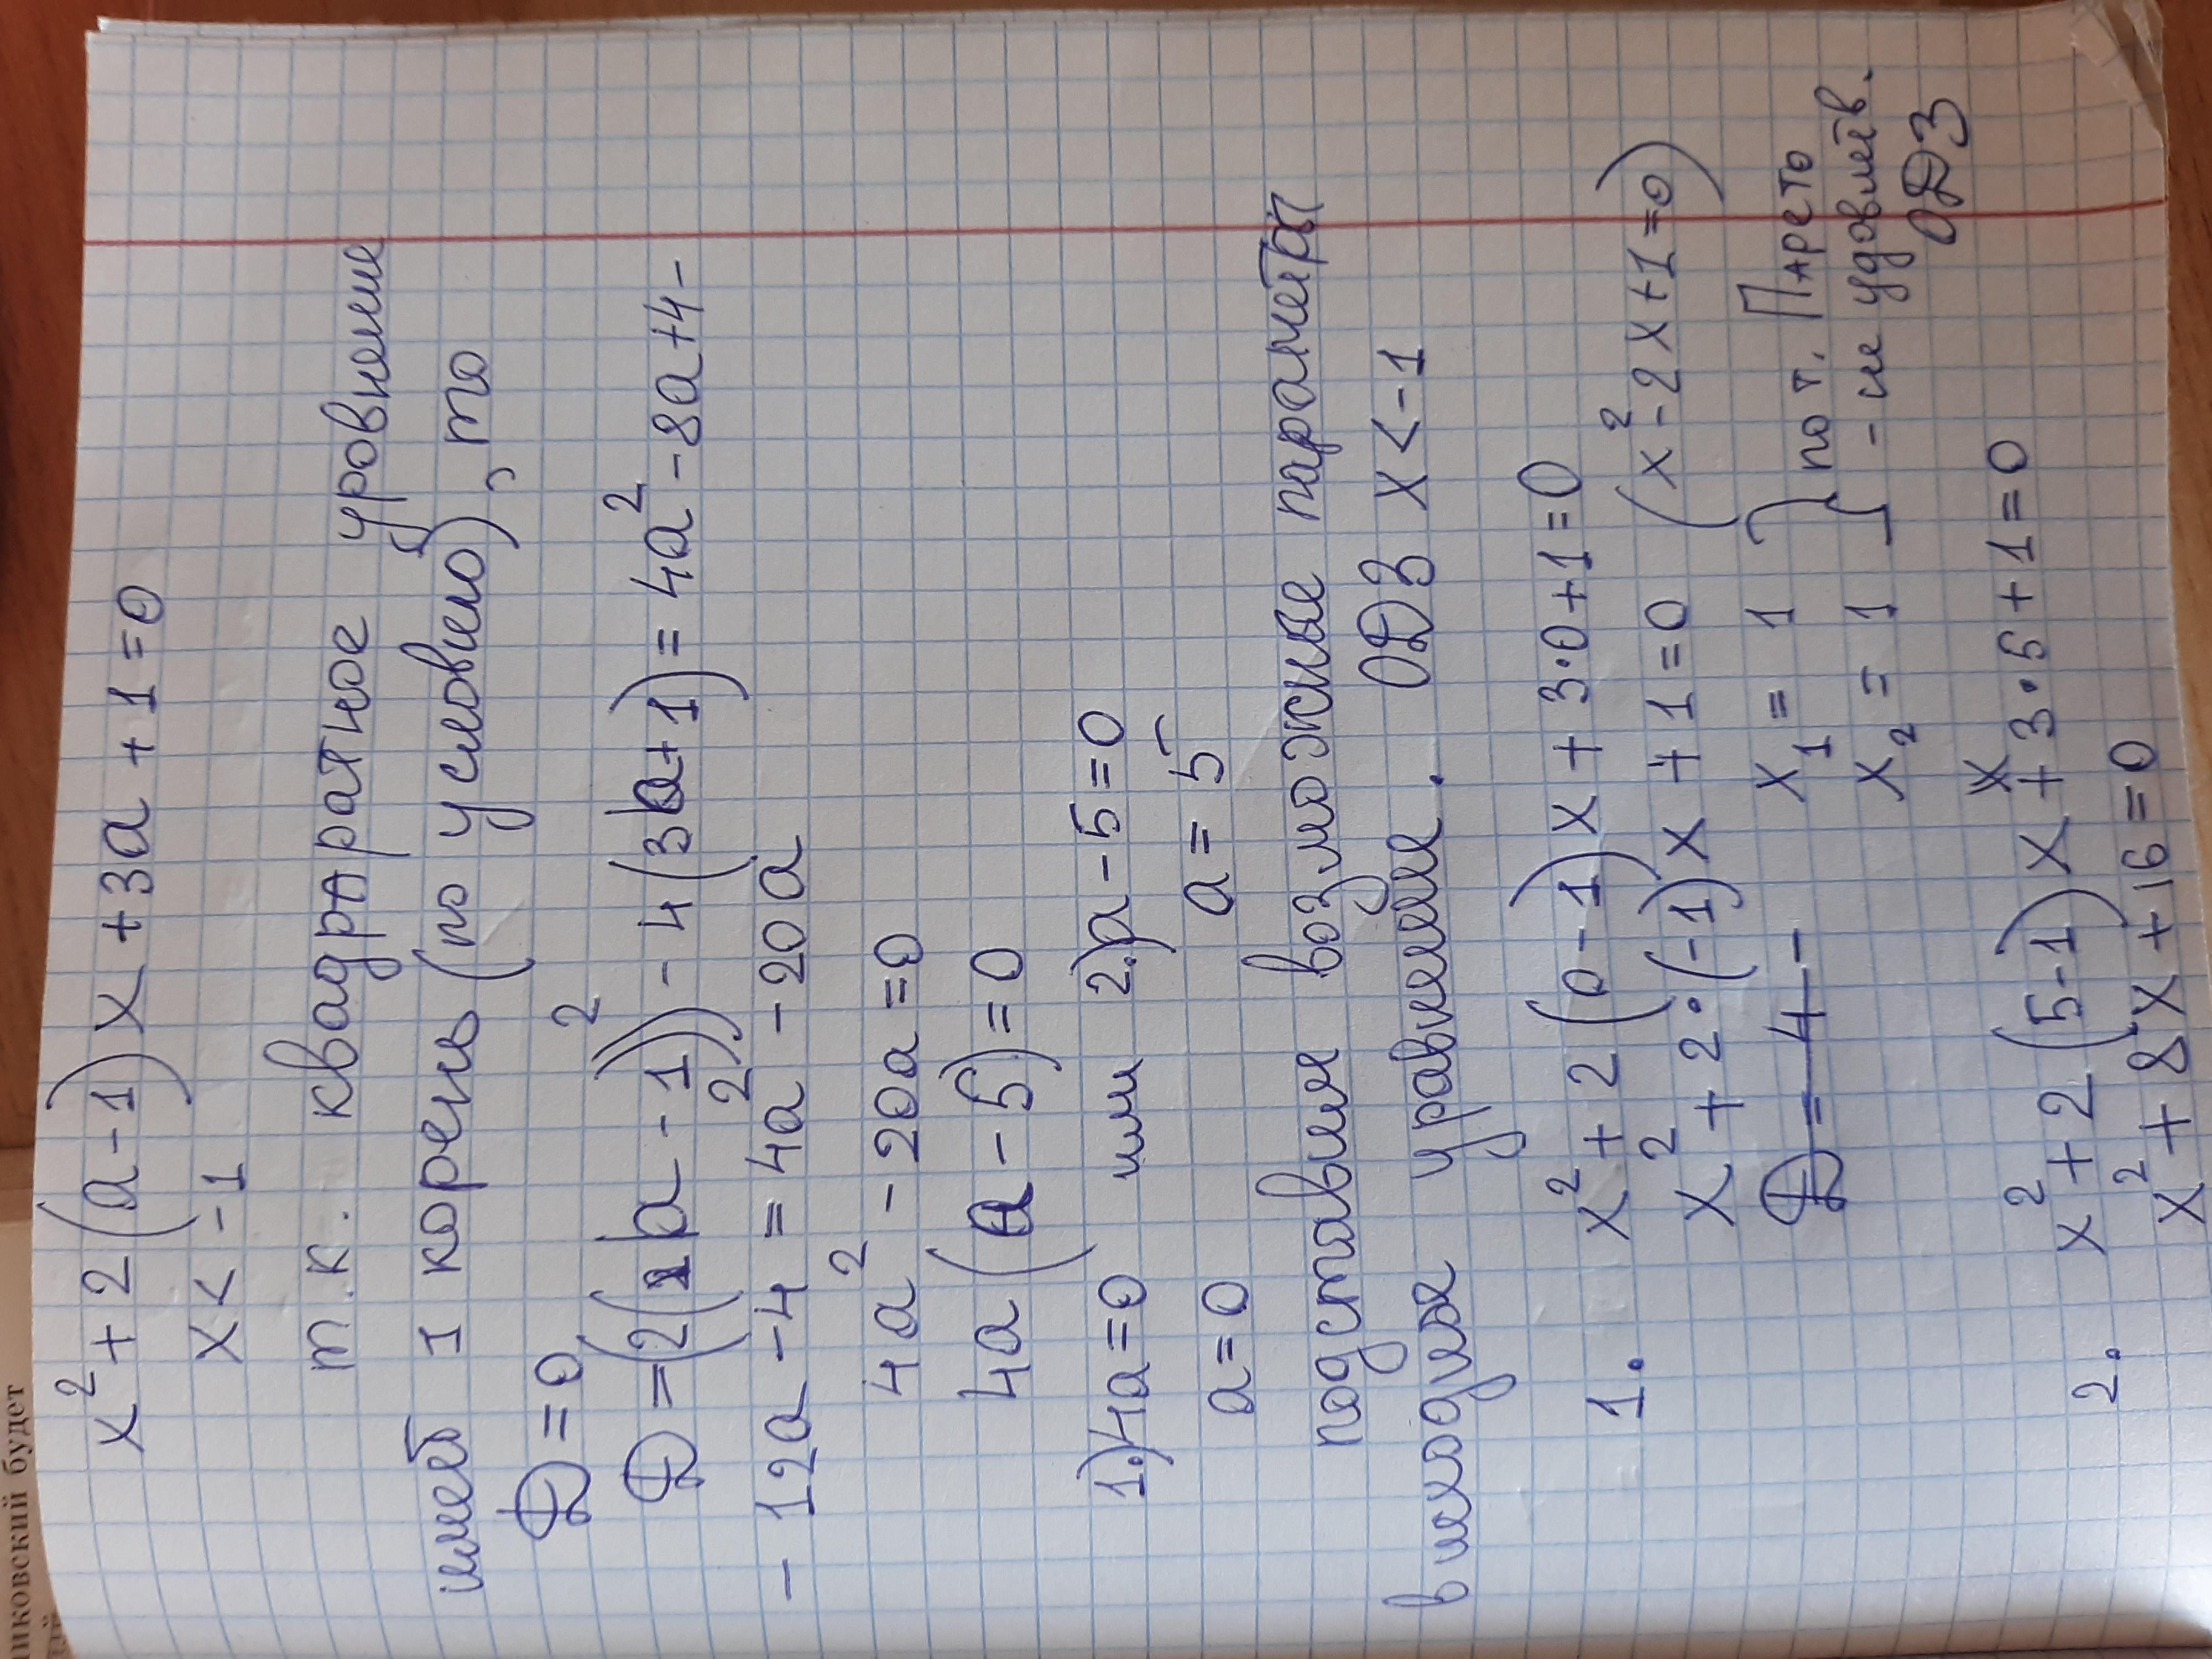 x² + 2(a-1)x + 3a + 1 = 0
x < -1
т.к. квадратное уровнение
имеет 1 корень (по условию), то
D = 0
D = (2(a-1))² - 4(3a+1) = 4a² - 8a + 4 -
- 12a - 4 = 4a² - 20a
4a² - 20a = 0
4a(a-5) = 0
1.) 4a = 0 или 2.) a - 5 = 0
a = 0 a = 5
подставим возможные параметры
в исходное уравнение. ОДЗ x < -1
1. x² + 2(0-1)x + 3·0 + 1 = 0
x² + 2·(-1)x + 1 = 0 (x² - 2x + 1 = 0)
D = 4 - x₁ = 1 } по т. Парето
x₂ = 1 } - не удовлетв. ОДЗ
2. x² + 2(5-1)x + 3·5 + 1 = 0
x² + 8x + 16 = 0
нковский будет